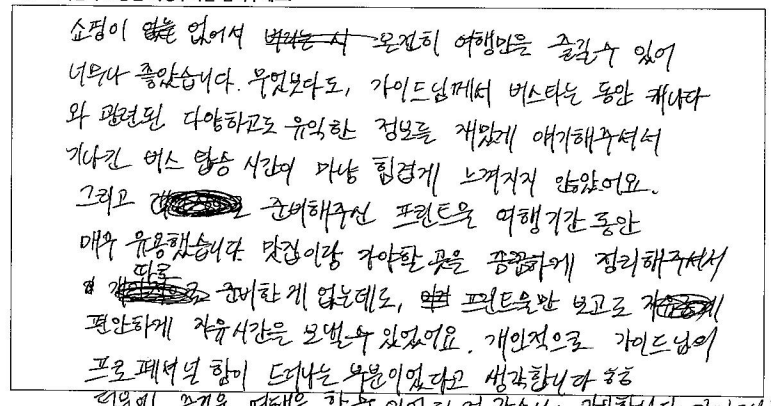 쇼핑이 없어서 온전히 여행만을 즐길 수 있어
너무나 좋았습니다. 무엇보다도, 가이드님께서 버스타는 동안 캐나다
와 관련된 다양하고도 유익한 정보를 재밌게 얘기해주셔서
기나긴 버스 탑승 시간이 마냥 힘겹게 느껴지지 않았어요.
그리고 준비해주신 프린트물 여행기간 동안
매우 유용했습니다 맛집이랑 가야할 곳을 꼼꼼하게 정리해주셔서
따로 준비한 게 없는데도, 프린트물만 보고도
편안하게 자유시간을 보낼 수 있었어요. 개인적으로 가이드님의
프로페셔널 함이 드러나는 부분이었다고 생각합니다 ㅎㅎ